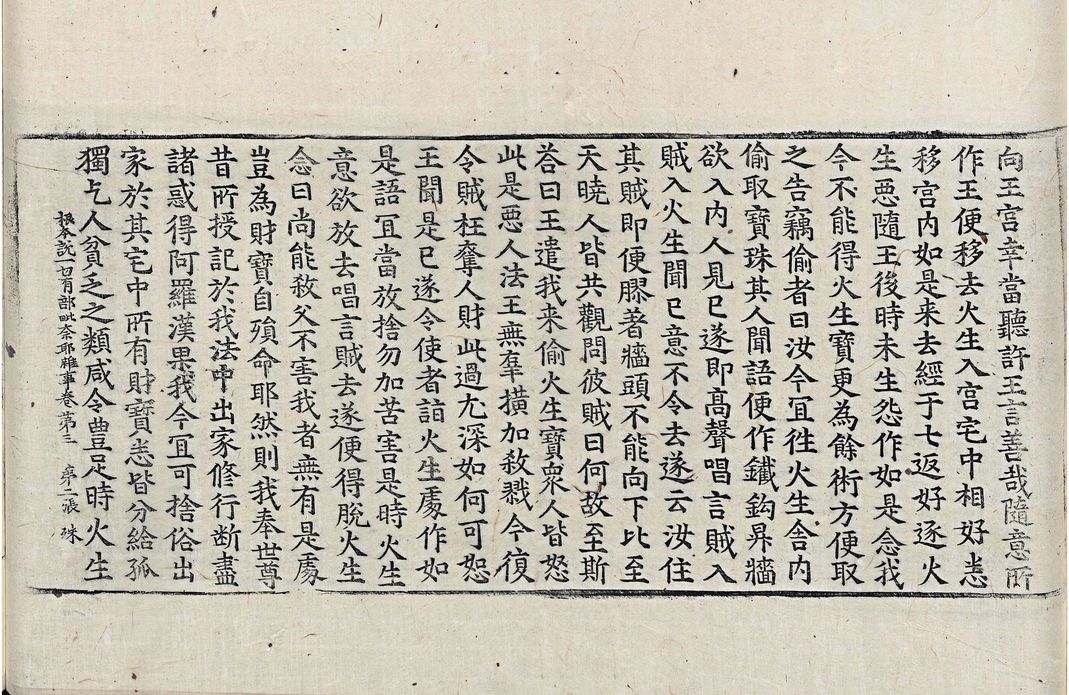 向王宮幸當聽許王言善哉隨意所
作王便移去火生入宮宅中相好悉
移宮内如是来去經于七返好逐火
生惡隨王後時未生怨作如是念我
今不能得火生寶更為餘術方便取
之告竊偷者曰汝今宜往火生舍内
偷取寶珠其人聞語便作鐵鈎昇牆
欲入内人見已遂即高聲唱言賊入
賊入火生聞已意不令去遂云汝住
其賊即便膠著牆頭不能向下比至
天曉人皆共觀問彼賊曰何故至斯
荅曰王遣我来偷火生寶衆人皆怒
此是惡人法王無辜横加殺戮今復
令賊枉奪人財此過尤深如何可恕
王聞是已遂令使者詣火生處作如
是語宜當放捨勿加苦害是時火生
意欲放去唱言賊去遂便得脫火生
念曰尚能殺父不害我者無有是處
豈為財寶自殞命耶然則我奉世尊
昔所授記於我法中出家修行断盡
諸惑得阿羅漢果我今宜可捨俗出
家於其宅中所有財寶悉皆分給孤
獨乞人貧乏之類咸令豊足時火生
根本說一切有部毗奈耶雜事卷第三 第二張 殊